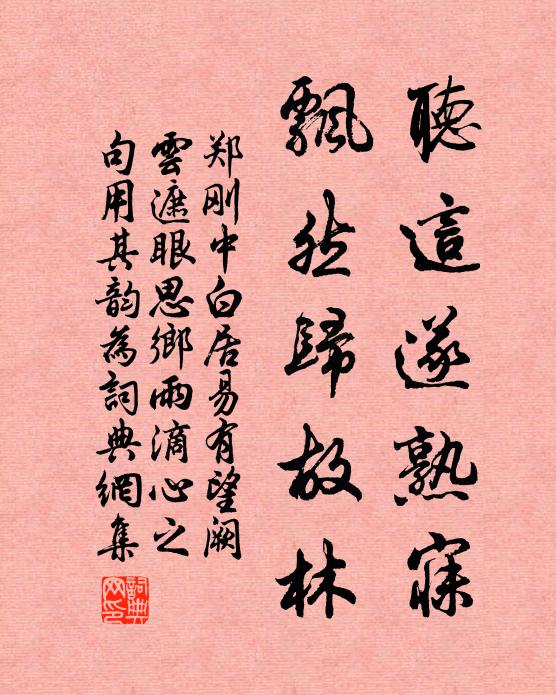 聽這遂熟寐
飄然歸故林
郑刚中白居易有望阙
雲遮眼思鄉雨滴心之
句用其韵為詞典網集
詞典網印